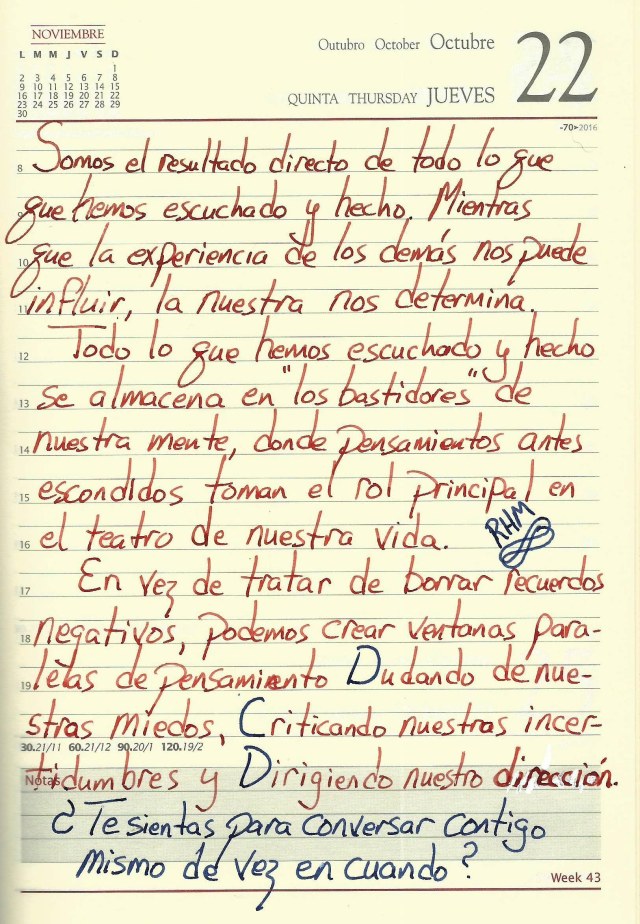 NOVIEMBRE
L M M J V S D
1
2 3 4 5 6 7 8
9 10 11 12 13 14 15
16 17 18 19 20 21 22
23 24 25 26 27 28 29
30
Outubro October Octubre
22
QUINTA THURSDAY JUEVES
-70>2016
8 Somos el resultado directo de todo lo que
que hemos escuchado y hecho. Mientras
10 que la experiencia de los demás nos puede
11 influir, la nuestra nos determina.
12 Todo lo que hemos escuchado y hecho
13 se almacena en "los bastidores" de
14 nuestra mente, donde pensamientos antes
15 escondidos toman el rol principal en
16 el teatro de nuestra vida.
RHM
17 En vez de tratar de borrar recuerdos
18 negativos, podemos crear ventanas para-
19 lelas de pensamiento Dudando de nue-
stras miedos, Criticando nuestras incer-
30.21/11 60.21/12 90.20/1 120.19/2
Notas tidumbres y Dirigiendo nuestro dirección.
¿Te sientas para conversar contigo
mismo de vez en cuando?
Week 43